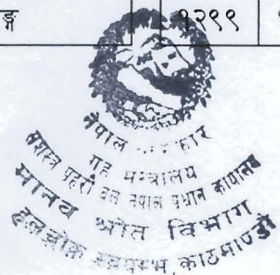 ङ्ग १२९९
नेपाल सरकार
गृह मन्त्रालय
सशस्त्र प्रहरी बल नेपाल प्रधान कार्यालय
मानव श्रोत विभाग
हलचोक स्वयम्भू काठमाण्डौ